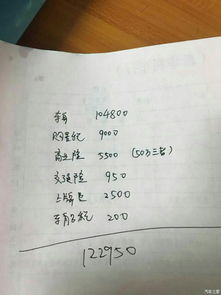 车 104800
购置税 9000
商业险 5500 (50万三者)
交强险 950
上牌费 2500
车船税 200
122950
汽车之家